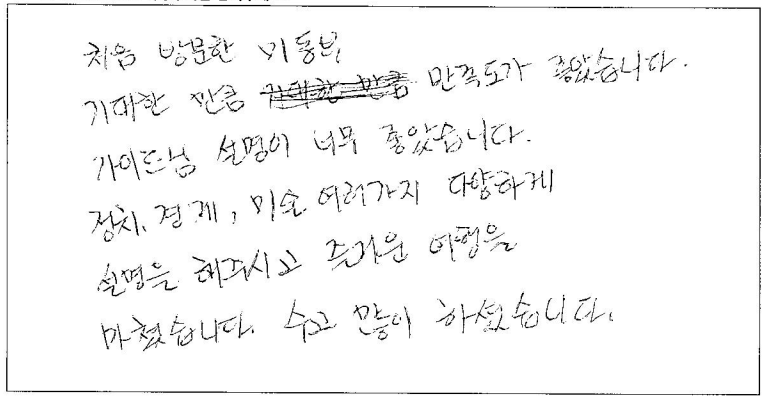 처음 방문한 미동부
기대한 만큼 만족도가 좋았습니다.
가이드님 설명이 너무 좋았습니다.
정치, 경제, 미술 여러가지 다양하게
설명을 해주시고 즐거운 여행을
마쳤습니다. 수고 많이 하셨습니다.